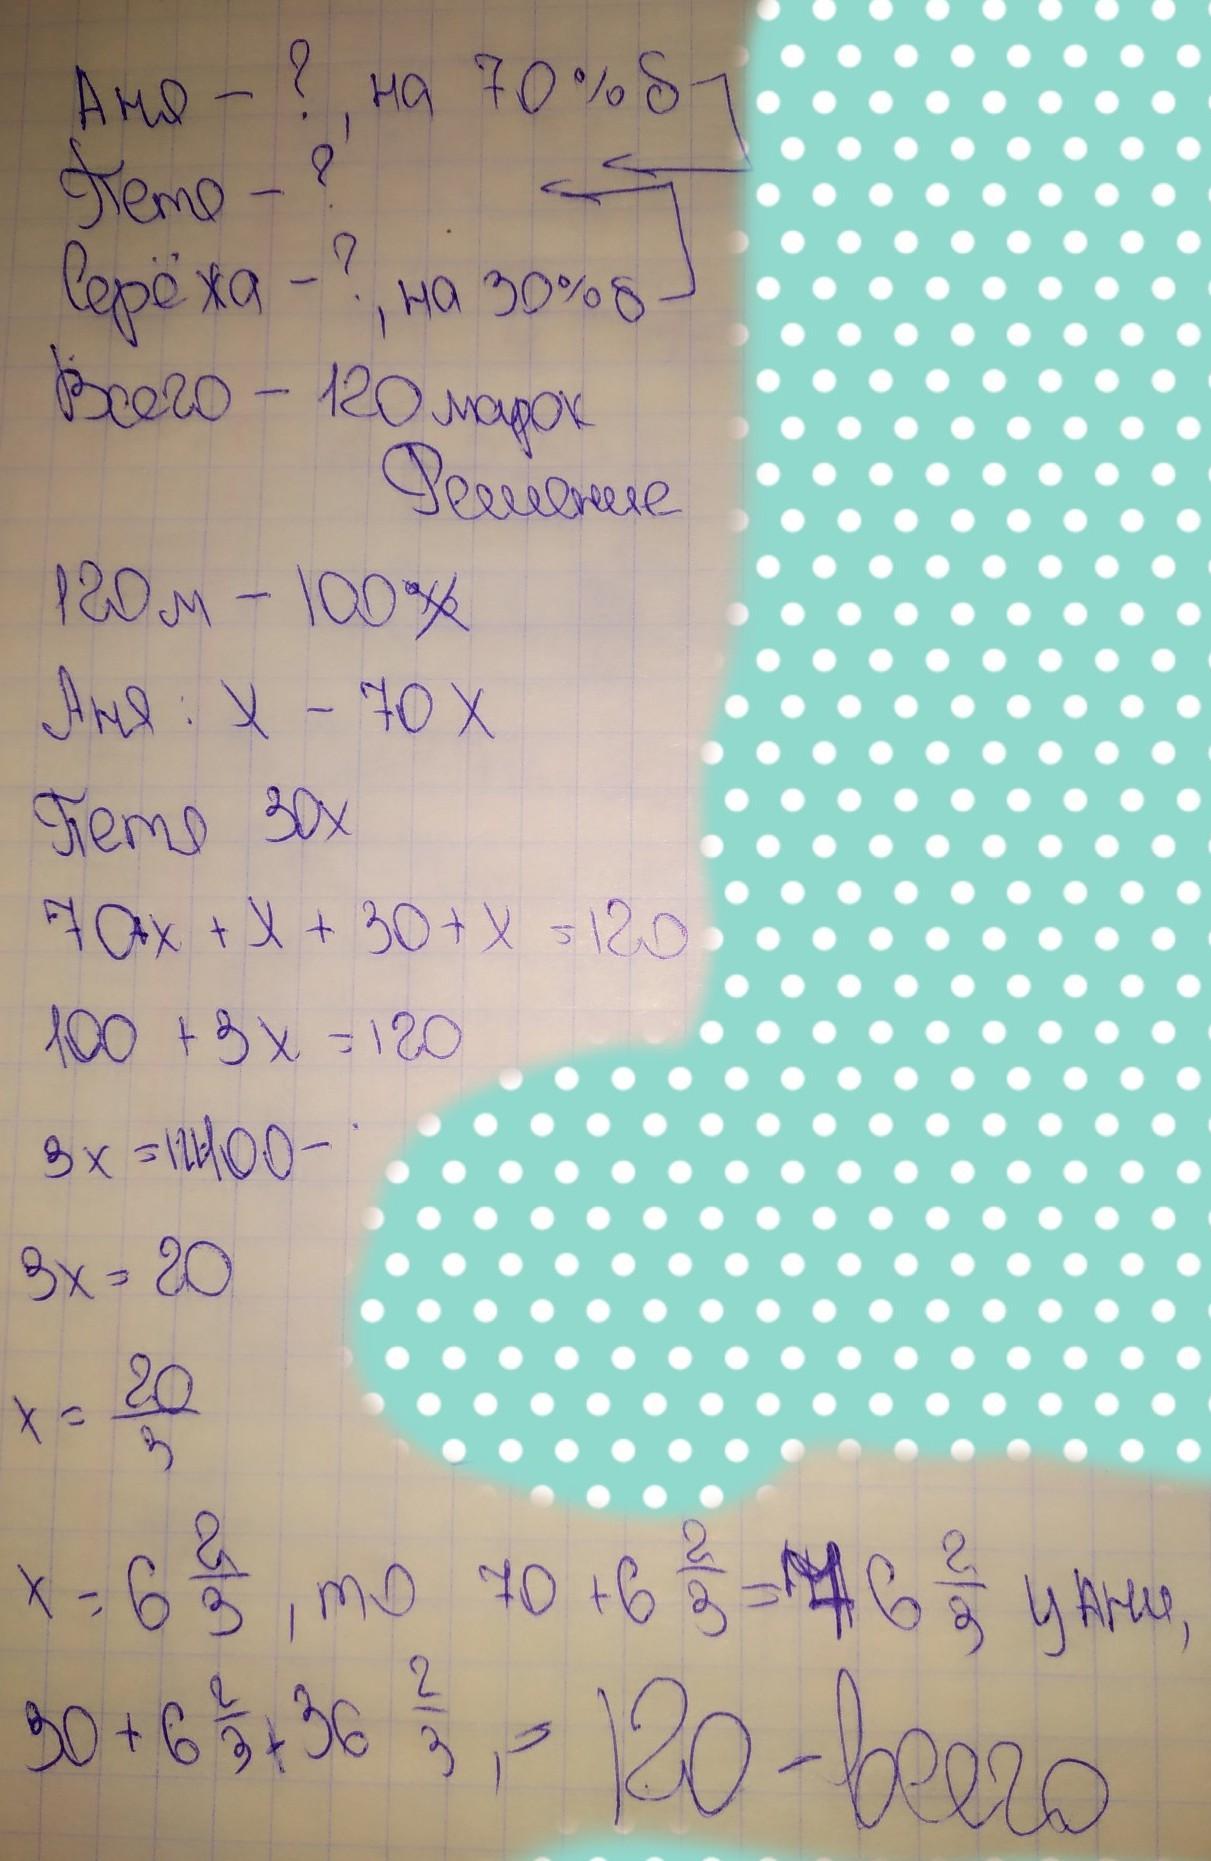 Аня - ?, на 70% б
Петя - ?
Серёжа - ?, на 30% б
Всего - 120 марок
Решение
120 м - 100%
Аня: х - 70 х
Петя 30х
70+х + х + 30 + х = 120
100 + 3х = 120
3х = 100 -
3х = 20
х = 20/3
х = 6 2/3, то 70 + 6 2/3 = 76 2/3 у Ани,
30 + 6 2/3 + 36 2/3, = 120 - всего